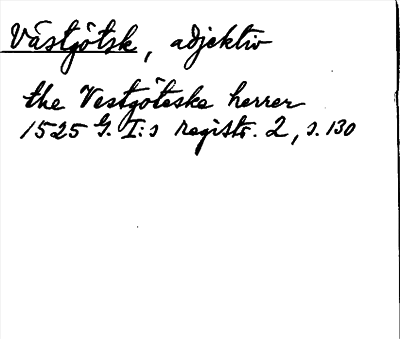 Västgötsk, adjektiv
the Vestgöteske herrer
1525 G. I:s registr. 2, s. 130